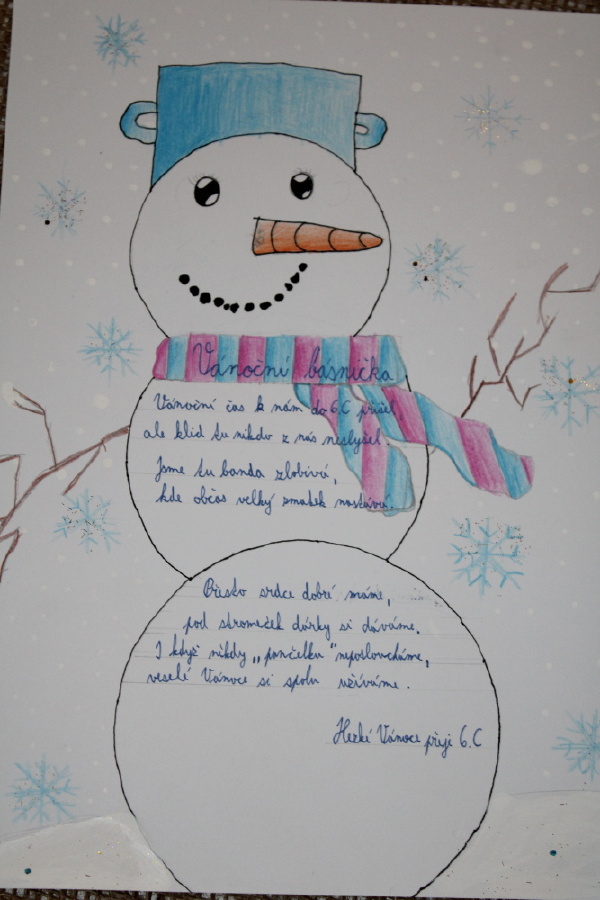 Vánoční básnička
Vánoční čas k nám do 6.C přišel,
ale klid tu nikdo z nás neslyšel.
Jsme tu banda zlobivá,
kde občas velký zmatek nastává.
Přesto srdce dobré máme,
pod stromeček dárky si dáváme.
I když nikdy „pančelku" neposloucháme,
veselé Vánoce si spolu užíváme.
Hezké Vánoce přeje 6.C